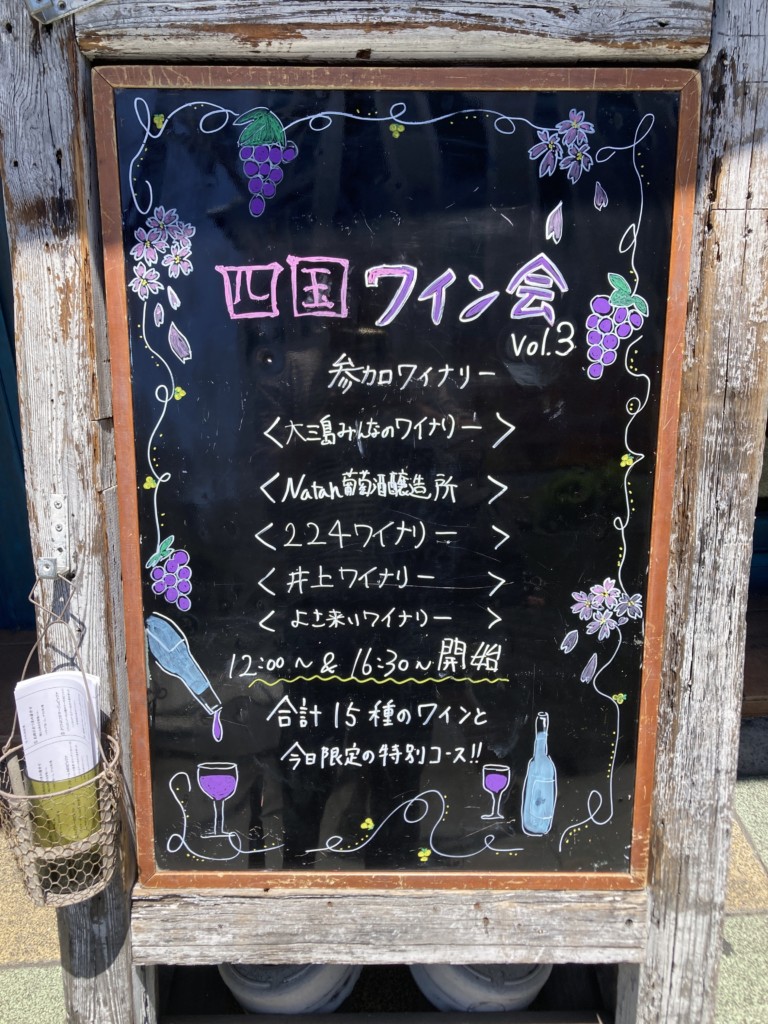 四国ワイン会
vol.3
参加ワイナリー
<大三島みんなのワイナリー>
<Natan葡萄酒醸造所>
<224ワイナリー>
<井上ワイナリー>
<よさ来いワイナリー>
12:00〜&16:30〜開始
合計15種のワインと
今日限定の特別コース!!